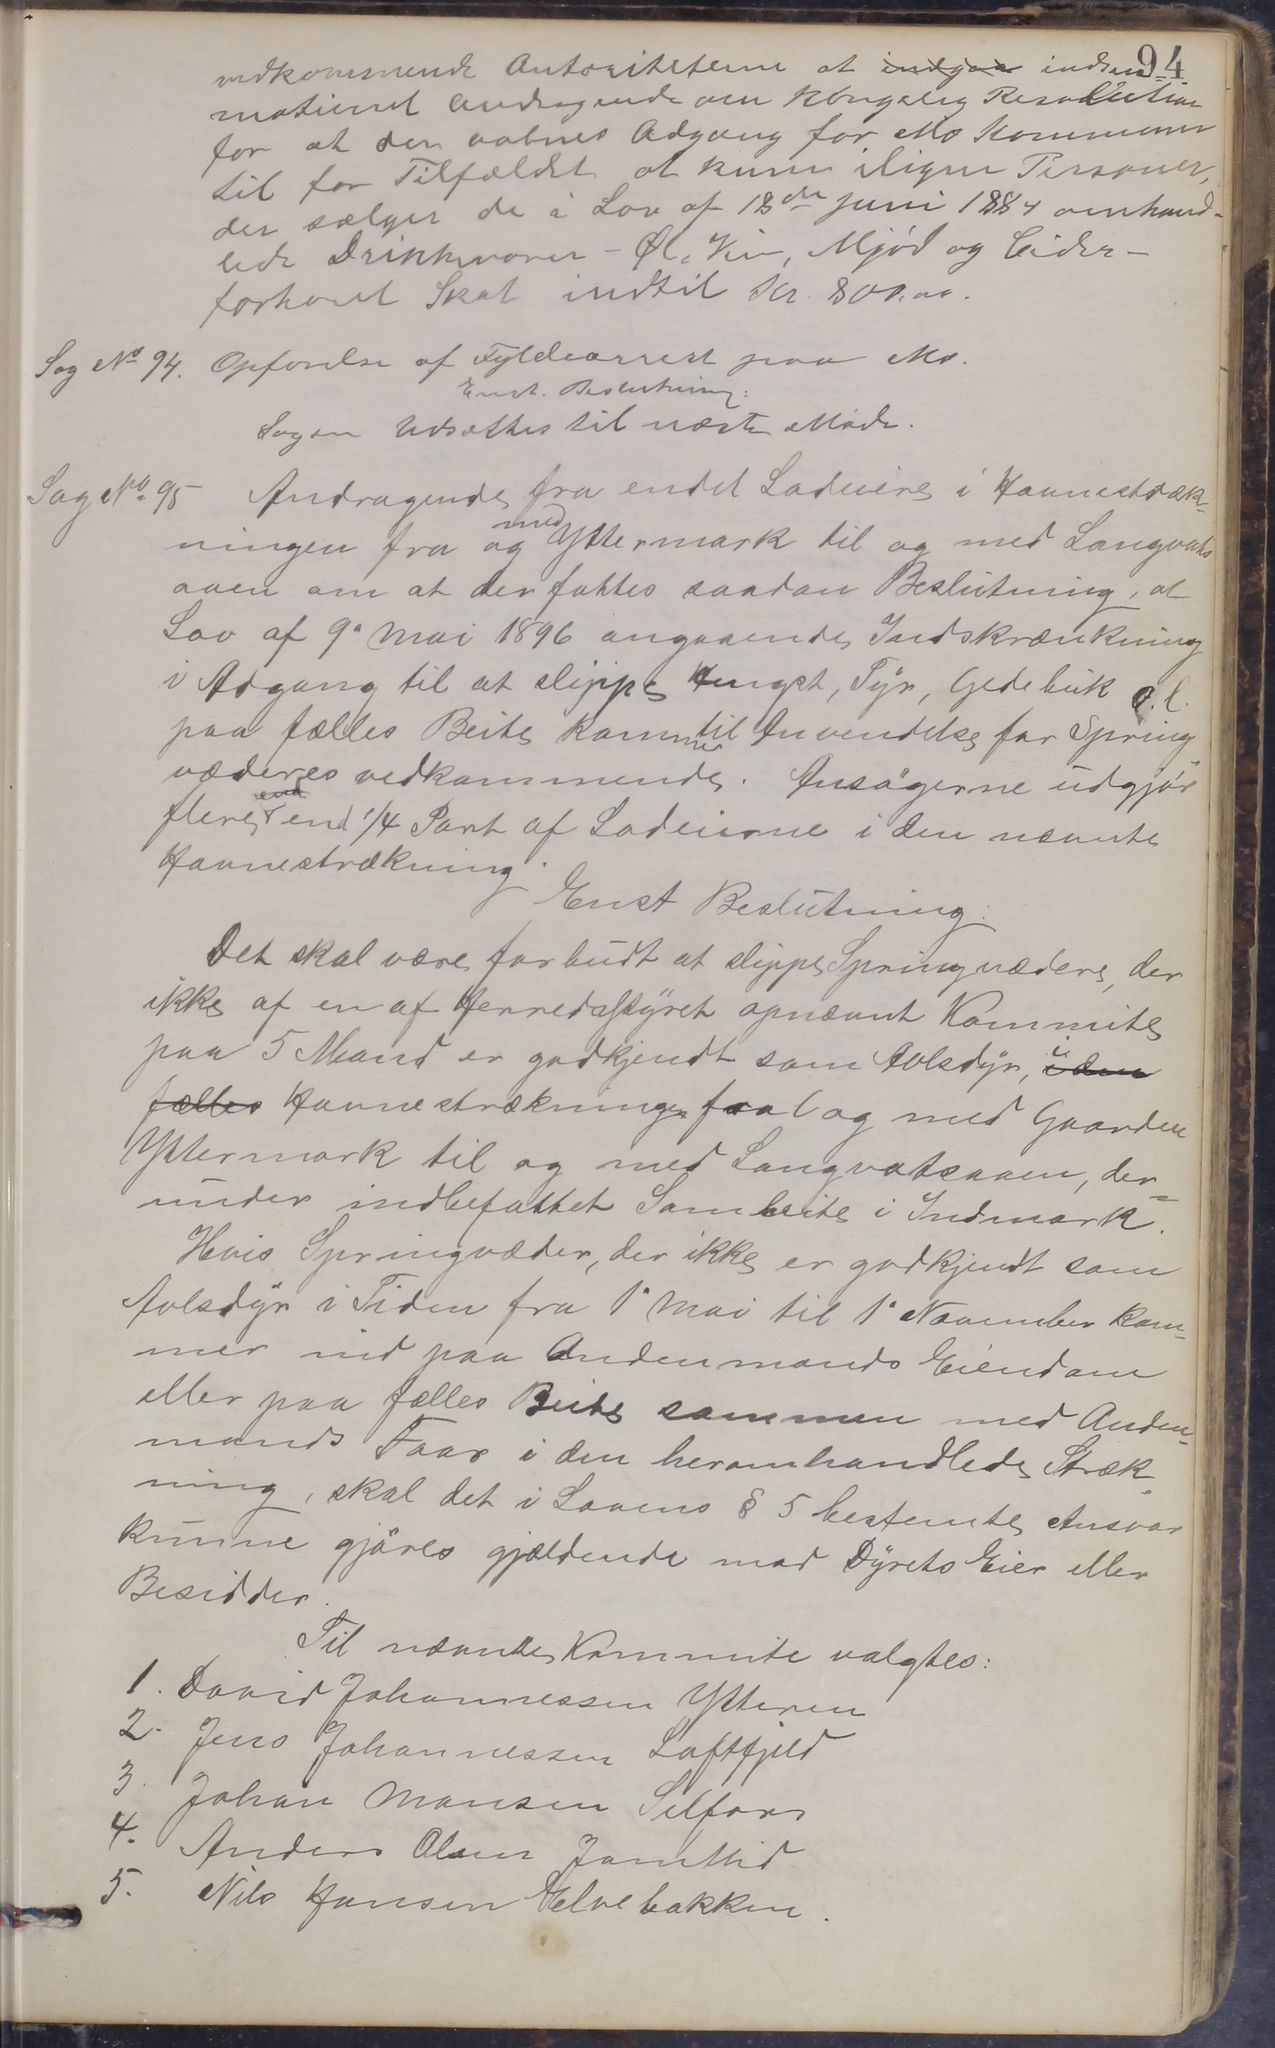 94
vedkommende Autoriteterne at indgaa indsende
motiveret Andragende om Kongelig Resolution
for at der aabnes Adgang for Mo Kommune
til for Tilfældet at kunne iligne Personer,
der sælger de i Lov af 18de Juni 1884 omhand-
lede Drikkevarer - Øl, Vin, Mjød og Cider -
forhøiet Skat indtil Kr. 800.00.
Sag No 94. Opførelse af Fyldearrest paa Mo.
Enst. Beslutning:
Sagen udsættes til næste Møde.
Sag No 95 Andragende fra endel Ladeiere i Havnestræk-
ningen fra og med Yttermark til og med Langvats
aaen om at der fattes saadan Beslutning, at
Lov af 9. Mai 1896 angaaende Indskrænkning
i Adgang til at slippe Hingst, Tyr, Gedebuk o.l.
paa fælles Beite kommer til Anvendelse for Spring
væderes vedkommende. Ansøgerne udgjør
flere end end 1/4 Part af Ladeierne i den nævnte
Havnestrækning.
Enst Beslutning:
Det skal være forbudt at slippe Springvædere, der
ikke af en af Herredsstyret opnævnt Kommite
paa 5 Mand er godkjendt som Avlsdyr, i den
fælles Havnestrækningen fra og med Gaarden
Yttermark til og med Langvatsaaen, der-
under indbefattet Sambeite i Indmark.
Hvis Springvæder, der ikke er godkjendt som
Avlsdyr i Tiden fra 1. Mai til 1. November kom-
mer ind paa Andenmands Eiendom
eller paa fælles Beite sammen med Anden-
mands Faar i den heromhandlede Stræk-
ning, skal det i Lovens § 5 bestemte Ansvar
kunne gjøres gjældende mod Dyrets Eier eller
Besidder.
Til nævnte Kommite valgtes:
1. David Johannessen Ytteren
2. Jens Johannessen Loftfjeld
3. Johan Monsen Selfors
4. Anders Olsen Jamtlid
5. Nils Hansen Elvebakken.